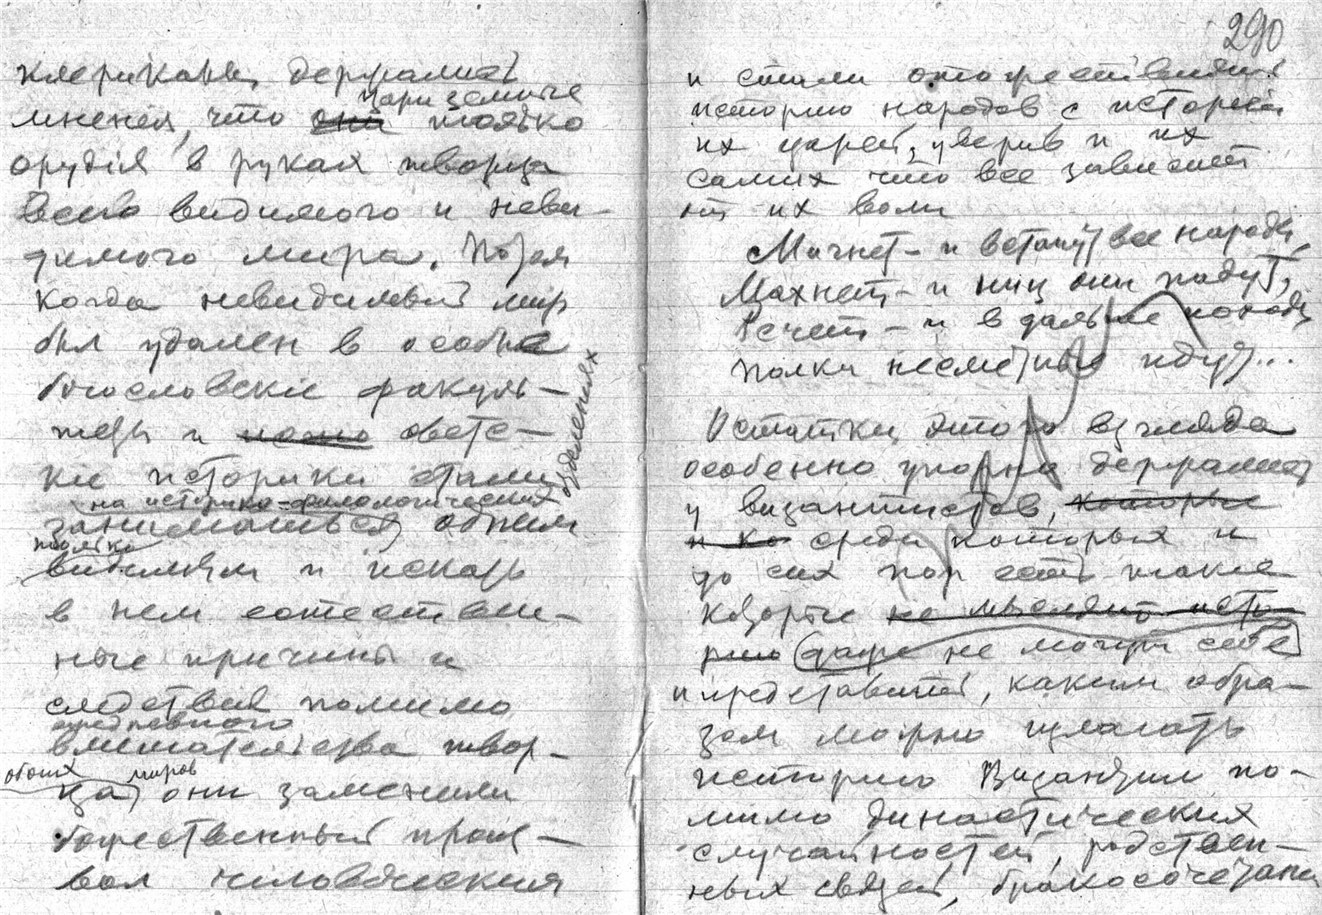 клерикалы, держались
цари земные
мнения, что они только
орудия в руках творца
всего видимого и неви-
димого мира. Потом
когда невидимый мир
был удален в особые
богословские факуль-
теты и светс-
кие историки стали
отделениях
на историко-филологических
заниматься одним
только
видимым и искать
в нем естествен-
ные причины и
следствия помимо
вмешательства твор-
обоих миров
ца, они заменили
божественный произ-
вол человеческим
290
и стали отожествлять
историю народов с историей
их царей, уверив и их
самих что все зависит
от их воли
Мигнет - и встанут все народы,
Махнет - и ниц они падут,
Речет - и в дальние походы
Полки несметные идут...
Остатки этого взгляда
особенно упорно держались
у византистов, которые
и ко среди которых и
до сих пор есть такие
которые не мыслят исто-
рию даже не могут себе
и представить, каким обра-
зом можно излагать
историю Византии по-
мимо династических
случайностей, родствен-
ных связей, бракосочетаний